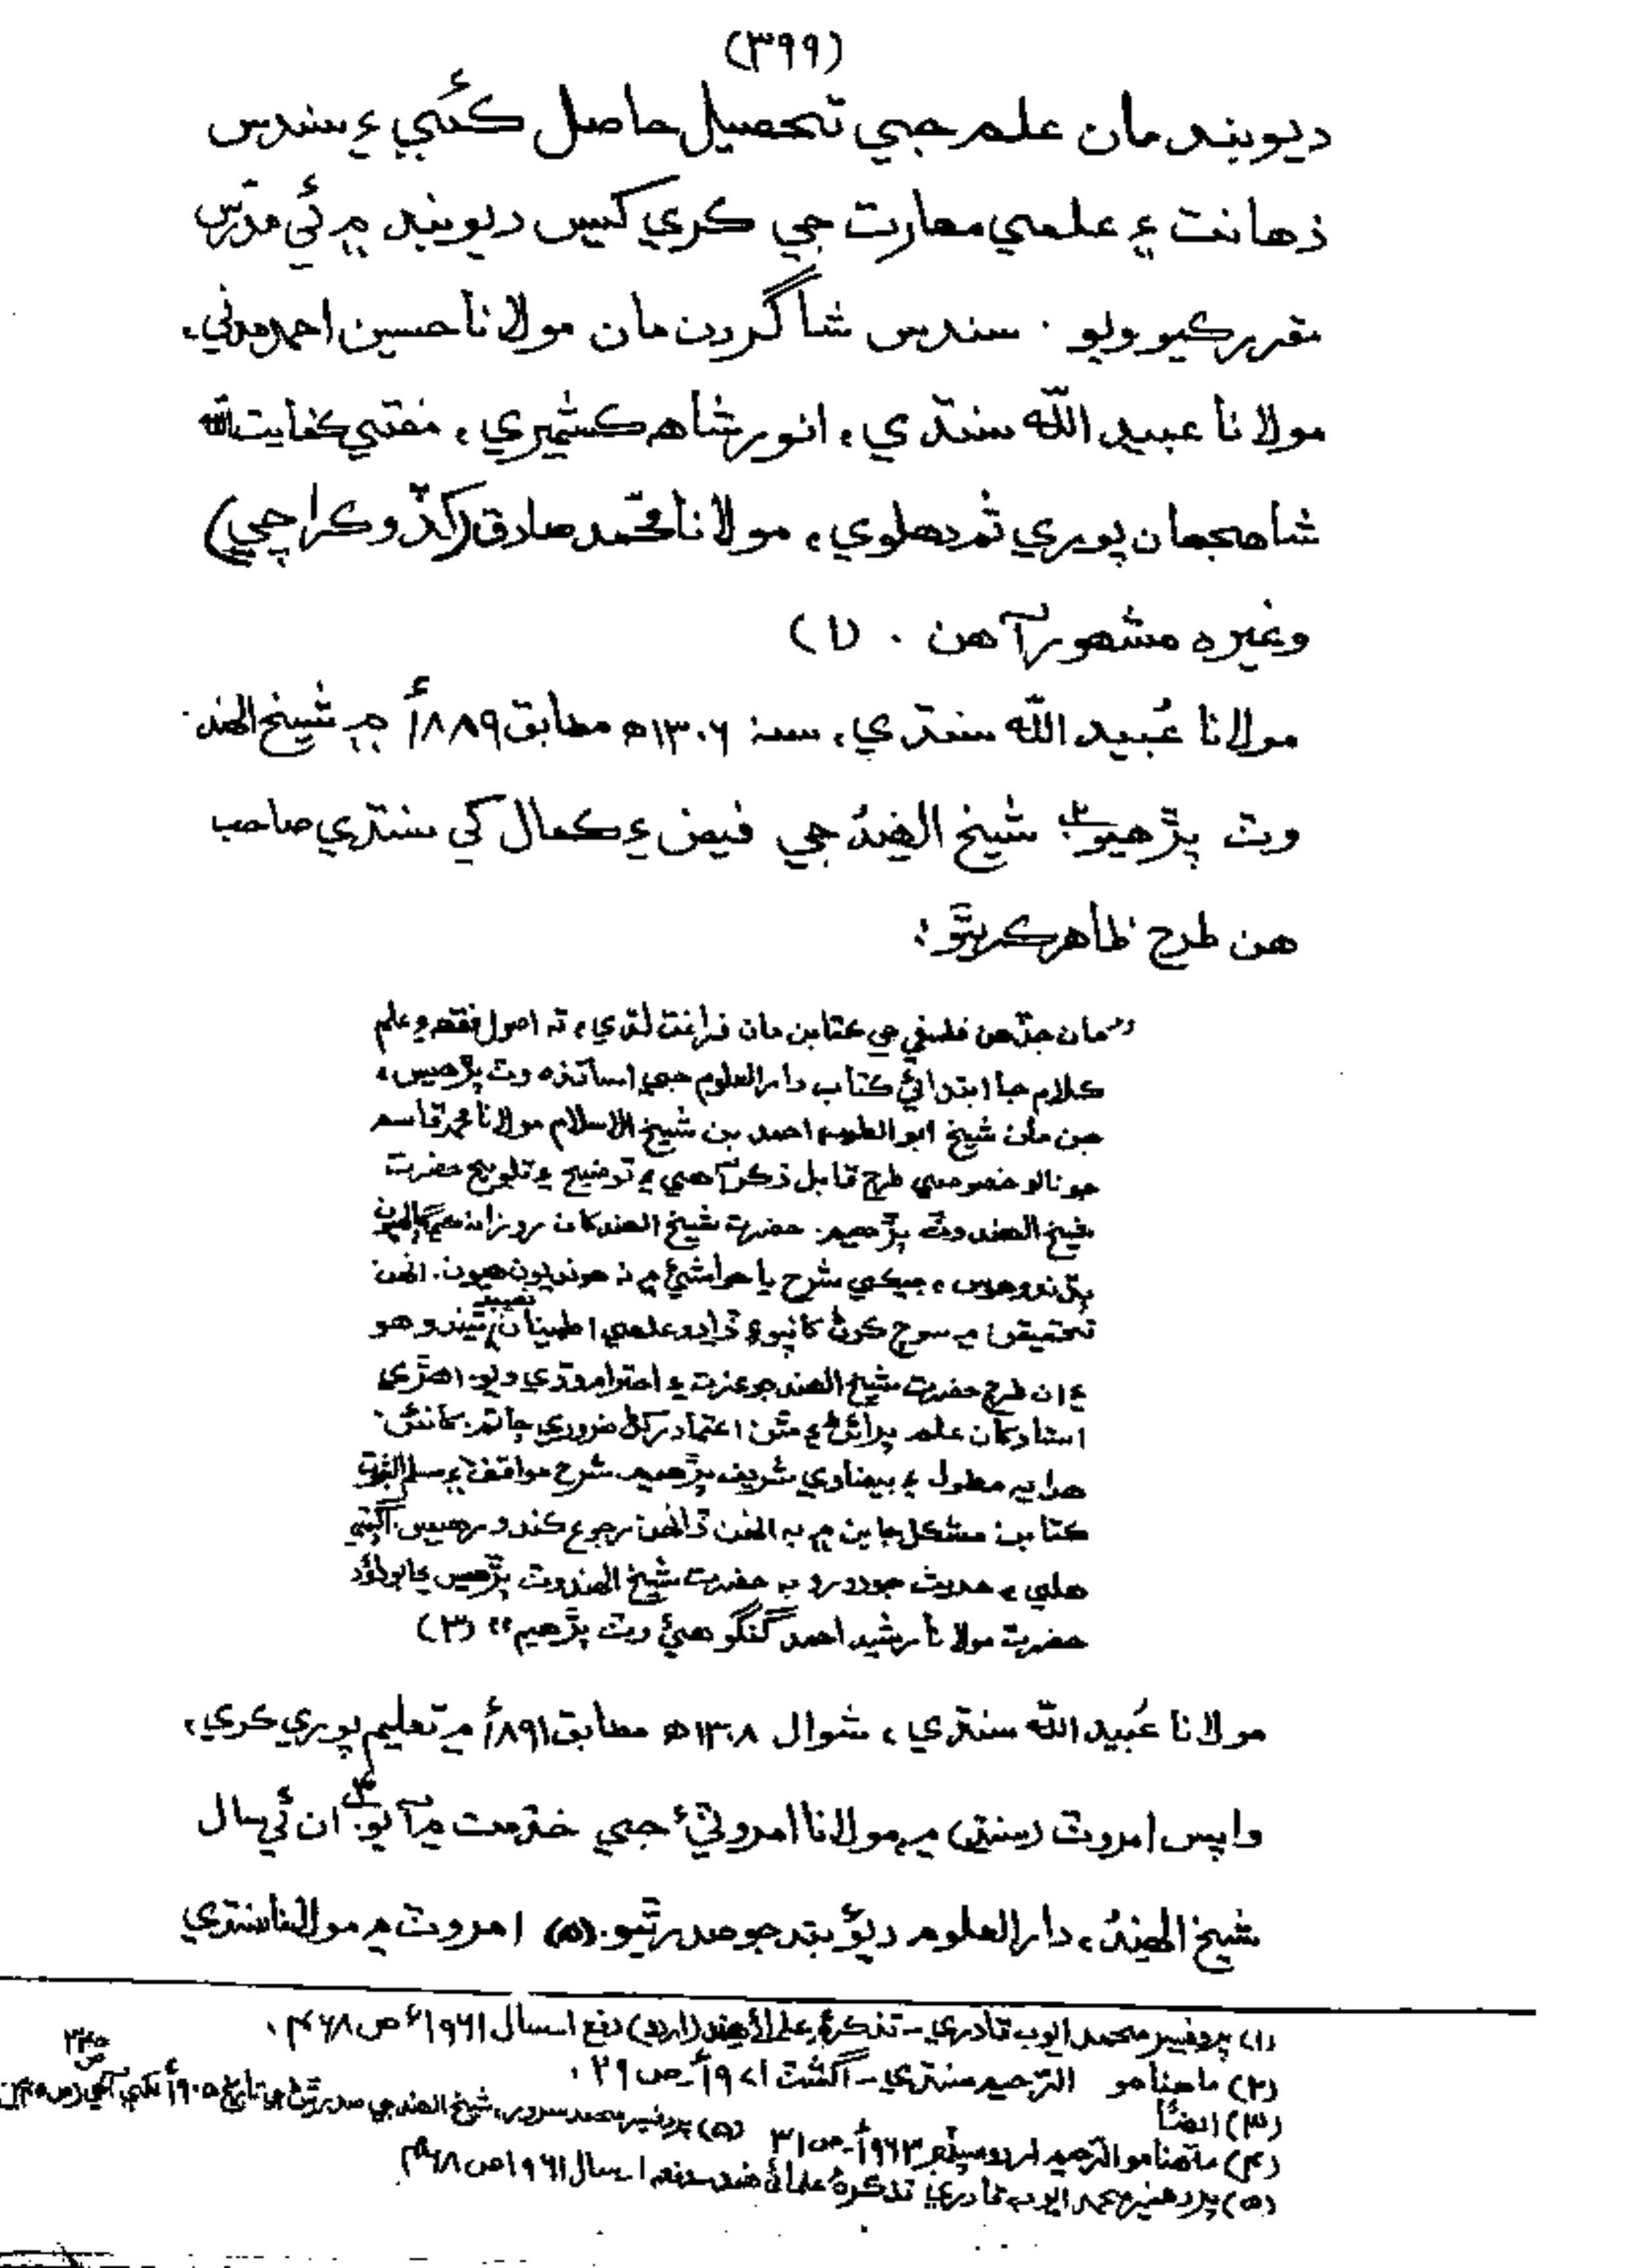 (۳۹۹)
ديوبند مان علم جي تحصيل حاصل ڪئي ۽ سندس
ذهانت ۽ علمي مهارت جي ڪري کيس ديوبند ۾ ئي مدرّس
مقرر ڪيو ويو. سندس شاگردن مان مولانا حسين احمد مدني،
مولانا عبيد الله سنڌي، انور شاهه ڪشميري، مفتي ڪفايت الله
شاهجهان پوري ثم دهلوي، مولانا محمّد صادق (کڏو ڪراچي)
وغيره مشهور آهن. (۱)
مولانا عُبيد الله سنڌي، سنه ۱۳۰۶ھ مطابق ۱۸۸۹ع ۾ شيخ الهند
وٽ پڙهيو(۲) شيخ الهند جي فيض ۽ ڪمال کي سنڌي صاحب
هن طرح ظاهر ڪري ٿو:
”مان جڏهن فلسفي جي ڪتابن مان فراغت لڌي، ته اصول فقه و علم
ڪلام جا ابتدائي ڪتاب دارالعلوم جي اساتذه وٽ پڙهيس،
جن مان شيخ ابو الطيب احمد بن شيخ الاسلام مولانا محمد قاسم
جو نالو خصوصي طرح قابل ذڪر آهي، توضيح ۽ تلويح حضرت
شيخ الهند وٽ پڙهيم. حضرت شيخ الهند کان روزانه ڳالهيون
ٻڌندو هوس، جيڪي شرح يا حواشيءَ ۾ نه هونديون هيون. انهن
تحقيقن ۾ سوچ ڪرڻ کانپوءِ ڏاڍو علمي اطمينان نصيب ٿيندو هو
۽ ان طرح حضرت شيخ الهند جو عزت ۽ احترام وڌي ويو. اهڙي
استاد کان علم پرائڻ ۽ مٿن اعتماد رکڻ ضروري ڄاتم. کانئن
هدايه مطول ۽ بيضاوي شريف پڙهيم. شرح مواقف ۽ مسلم الثبوت
ڪتابن مشڪل جاين ۾ به انهن ڏانهن رجوع ڪندو رهيس. اڳتي
هلي، حديث جو دورو به حضرت شيخ الهند وٽ پڙهيس ۽ ابوداؤد
حضرت مولانا رشيد احمد گنگوهيءَ وٽ پڙهيم“ (۳)
مولانا عُبيد الله سنڌي، شوال ۱۳۰۸ھ مطابق ۱۸۹۱ع ۾ تعليم پوري ڪري،
واپس امروٽ (سنڌ) ۾ مولانا امروٽيءَ جي خدمت ۾ آيو.(۴) ان ئي سال
شيخ الهند، دارالعلوم ديوبند جو صدر ٿيو.(۵) امروٽ ۾ مولانا سنڌي
(۱) پروفيسر محمد ايوب قادري - تذڪرهٔ علماءِ هند (اردو) دفع ۱ سال ۱۹۶۱ع ص ۴۶۸.
(۲) ماهنامو الرّحيم سنڌي - آگسٽ ۱۹۷۱ع ص ۲۹.
(۳) ايضًا
(۴) ماهنامو الرّحيم اردو سيپٽمبر ۱۹۶۳ع ص ۳۱ (۵) پروفيسر محمد سرور، شيخ الهند جي صدر ٿيڻ جي تاريخ ۱۹۰۵ع لکي آهي
(۵) پروفيسر محمد ايوب قادري تذڪرهٔ علمائ هند دفعه ۱ سال ۱۹۶۱ ص ۴۶۸